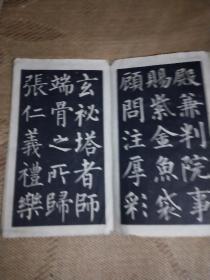 殿兼判院事
賜紫金魚袋
顧問注厚彩
玄祕塔者師
端骨之所歸
張仁義禮樂